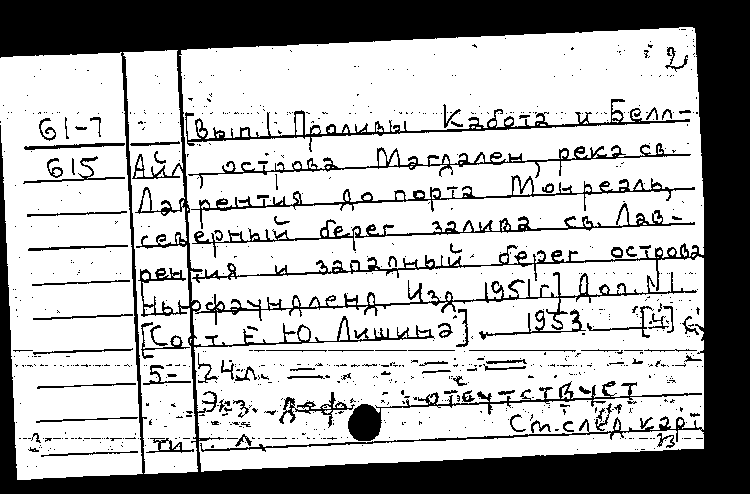 2
61-7 [Вып.1. Проливы Кабота и Белл-
615 Айл, острова Магдален, река св.
Лаврентия до порта Монреаль,
северный берег залива св. Лав-
рентия и западный берег острова
Ньюфаундленд. Изд. 1951г.] Доп. N1.
[Сост. Е. Ю. Лишина]. 1953. [4] с,
5-24л.
Экз. деф. отсутствует
Ст.след.карт
тит. л.